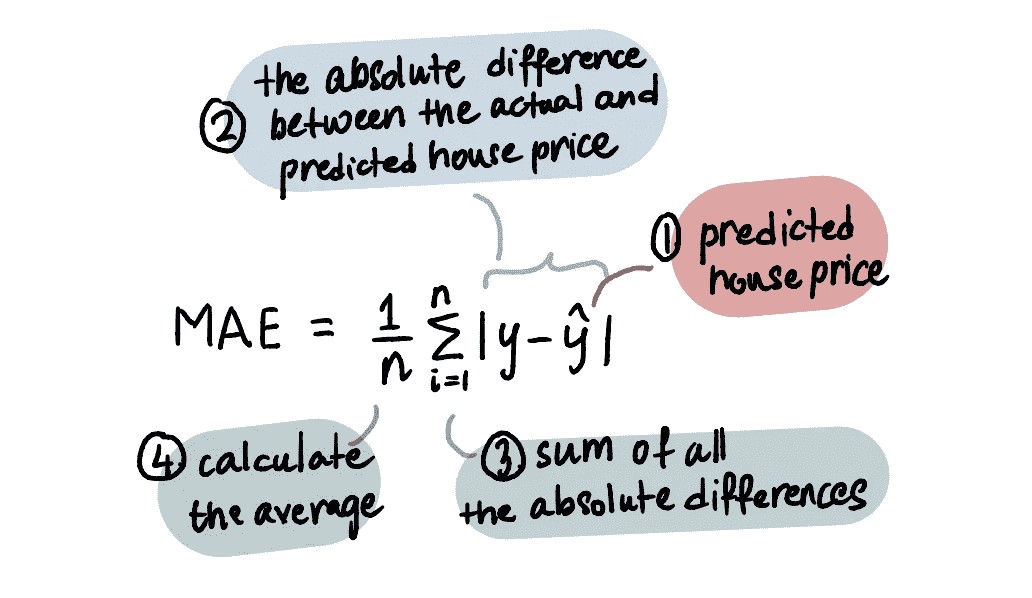 the absolute difference
② between the actual and
predicted house price
① predicted
house price
MAE = 1/n n∑i=1 |y-ŷ|
④ calculate
the average
③ sum of all
the absolute differences